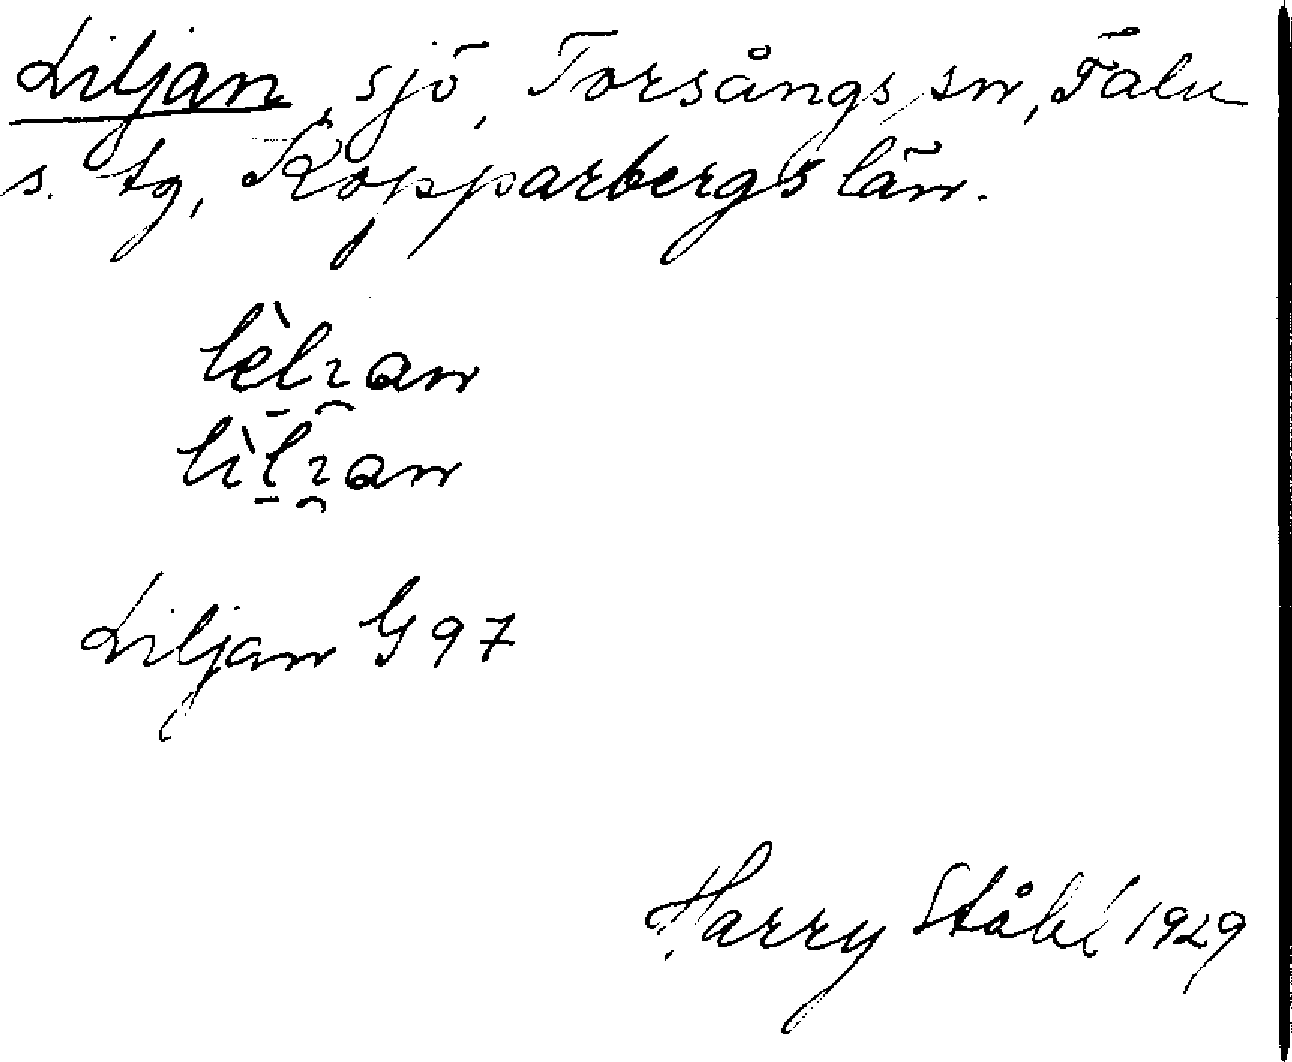 Liljan, sjö, Torsångs sn, Falu
s. tg, Kopparbergs län.
Liljan G 97
Harry Ståhl 1929